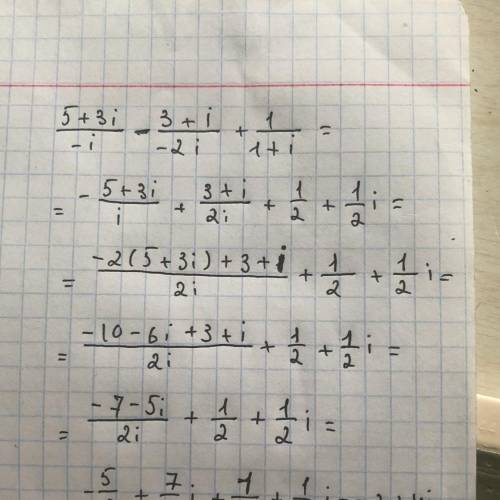 (5+3i)/(-i) - (3+i)/(-2i) + 1/(1+i) =
= - (5+3i)/i + (3+i)/(2i) + 1/2 + 1/2 i =
= (-2(5+3i)+3+i)/(2i) + 1/2 + 1/2 i =
= (-10-6i+3+i)/(2i) + 1/2 + 1/2 i =
= (-7-5i)/(2i) + 1/2 + 1/2 i =